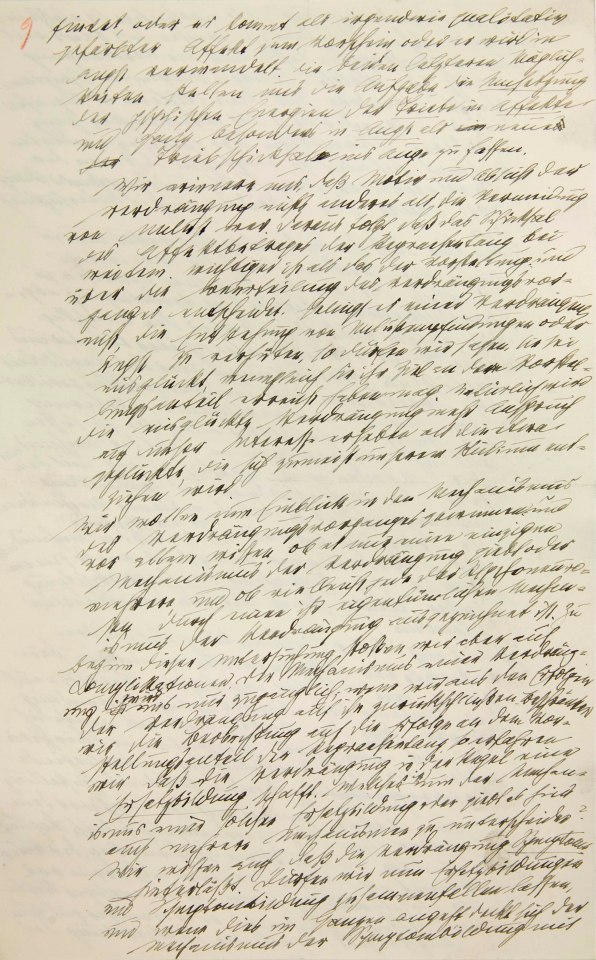 9
findet, oder es kommt als irgendwie qualitativ
gefärbter Affekt zum Vorschein oder es wird in
Angst verwandelt. Die beiden letzteren Möglich-
keiten stellen uns die Aufgabe die Umsetzung
der psychischen Energien der Triebe in Affekte
und ganz besonders in Angst als neues
Triebschicksal ins Auge zu fassen.
Wir erinnern uns, daß Motiv und Absicht der
Verdrängung nichts anderes als die Vermeidung
von Unlust war. Daraus folgt daß das Schicksal
des Affektbetrages der Repraesentanz bei
weitem wichtiger ist als das der Vorstellung und
über die Beurteilung des Verdrängungsvor-
ganges entscheidet. Gelingt es einer Verdrängung
nicht, die Entstehung von Unlustempfindungen oder
Angst zu verhüten, so dürfen wir sagen, sie sei
mißglückt, wenngleich sie ihr Ziel an dem Vorstel-
lungsanteil erreicht haben mag. Natürlich wird
die mißglückte Verdrängung mehr Anspruch
auf unser Interesse erheben als die etwa
geglückte, die sich zumeist unserem Studium ent-
ziehen wird.
Wir wollen nun Einblick in den Mechanismus
des Verdrängungsvorganges gewinnen und
vor allem wissen ob es nur einen einzigen
Mechanismus der Verdrängung giebt oder
mehrere, und ob vielleicht jede der Psychoneuro-
sen durch einen ihr eigentümlichen Mechan-
ismus der Verdrängung ausgezeichnet ist. Zu
Beginn dieser Untersuchung stoßen wir aber auf
Complikationen. Der Mechanismus einer Verdrän-
gung wird uns nur zugänglich, wenn wir aus den Erfolgen
der Verdrängung auf ihn zurückschließen. Beschränken
wir die Beobachtung auf die Erfolge an dem Vor-
stellungsanteil der Repraesentanz, so erfahren
wir daß die Verdrängung in der Regel eine
Ersatzbildung schafft. Welches ist nun der Mechan-
ismus einer solchen Ersatzbildung oder giebt es hier
auch mehrere Mechanismen zu unterscheiden?
Wir wissen auch daß die Verdrängung Symptome
hinterläßt. Dürfen wir nun Ersatzbildungen
und Symptombildung zusammenfallen lassen,
und wenn dies im Ganzen angeht deckt sich der
Mechanismus der Symptombildung mit